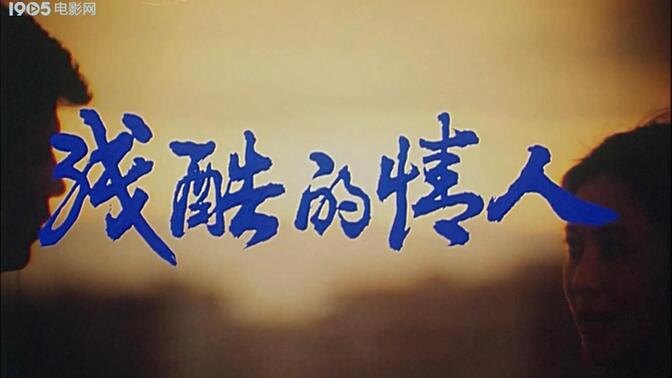 1905电影网
残酷的情人